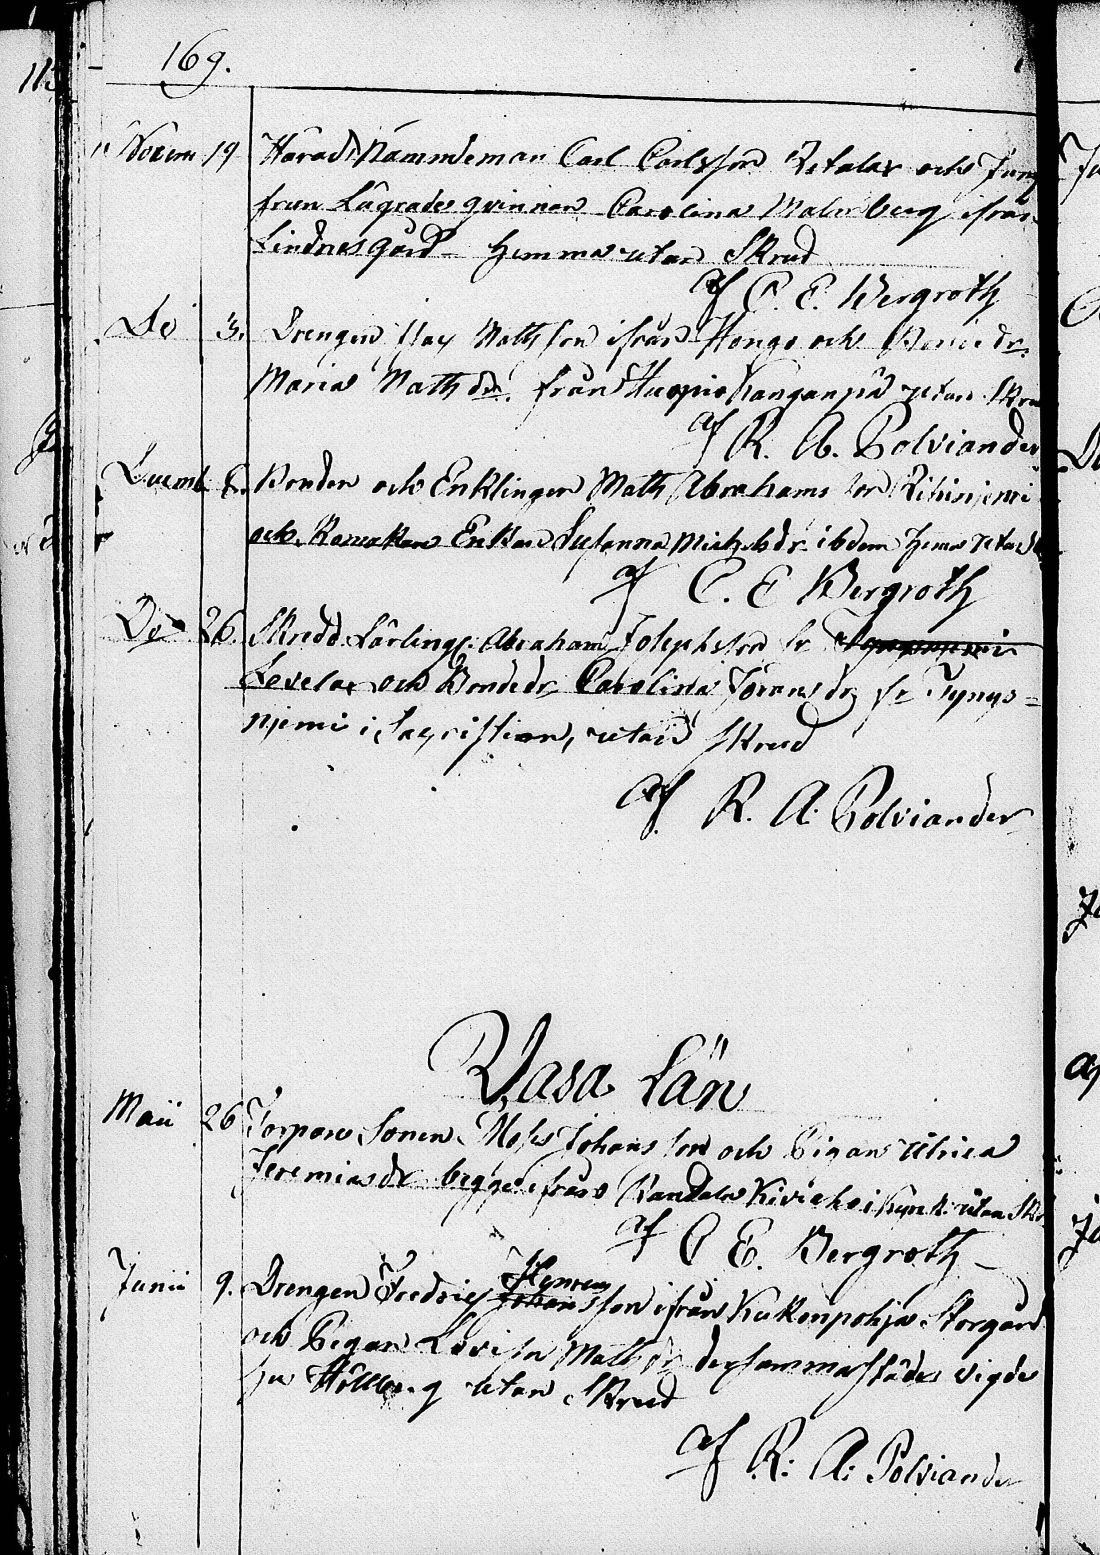 169.
Novem 19 Härads Nämndeman Carl Carlsson Retala och Jung
frun Lägrades qvinnan Carolina Malmberg ifrån
Lindnäs gård hemma utan Skrud
af C. E. Bergroth
Do 3. Drengen Isac Mathsson ifrån Hongo och Bonde dr.
Maria Maths dr. från Kuopio Kanganpä utan Skru
af R. A. Polviander
Decemb. Bonden och Enklingen Math Abrahams son
och Enkan Susanna Michels dr ibdem hema utan
af C. E Bergroth
Do 26. Skredd. Lärling. Abraham Josephsson fr
Levelax och Bondedr Carolina Jörans dr fr Tynys=
njemi i Sacristian, utan Skrud
af R. A. Polviander
Vasa Län
Maii 26 Torpare Sonen Johans son och Pigan Ulrica
Jeremias dr begge ifrån Kiviaho i utan Skr
af C E. Bergroth
Junii 9. Drengen Fredric Henrics
Johansson ifrån Kukonpohja Storgård
och Pigan Lovisa Maths dr dersammastädes vigde
utan Skrud
af R. A. Polviander